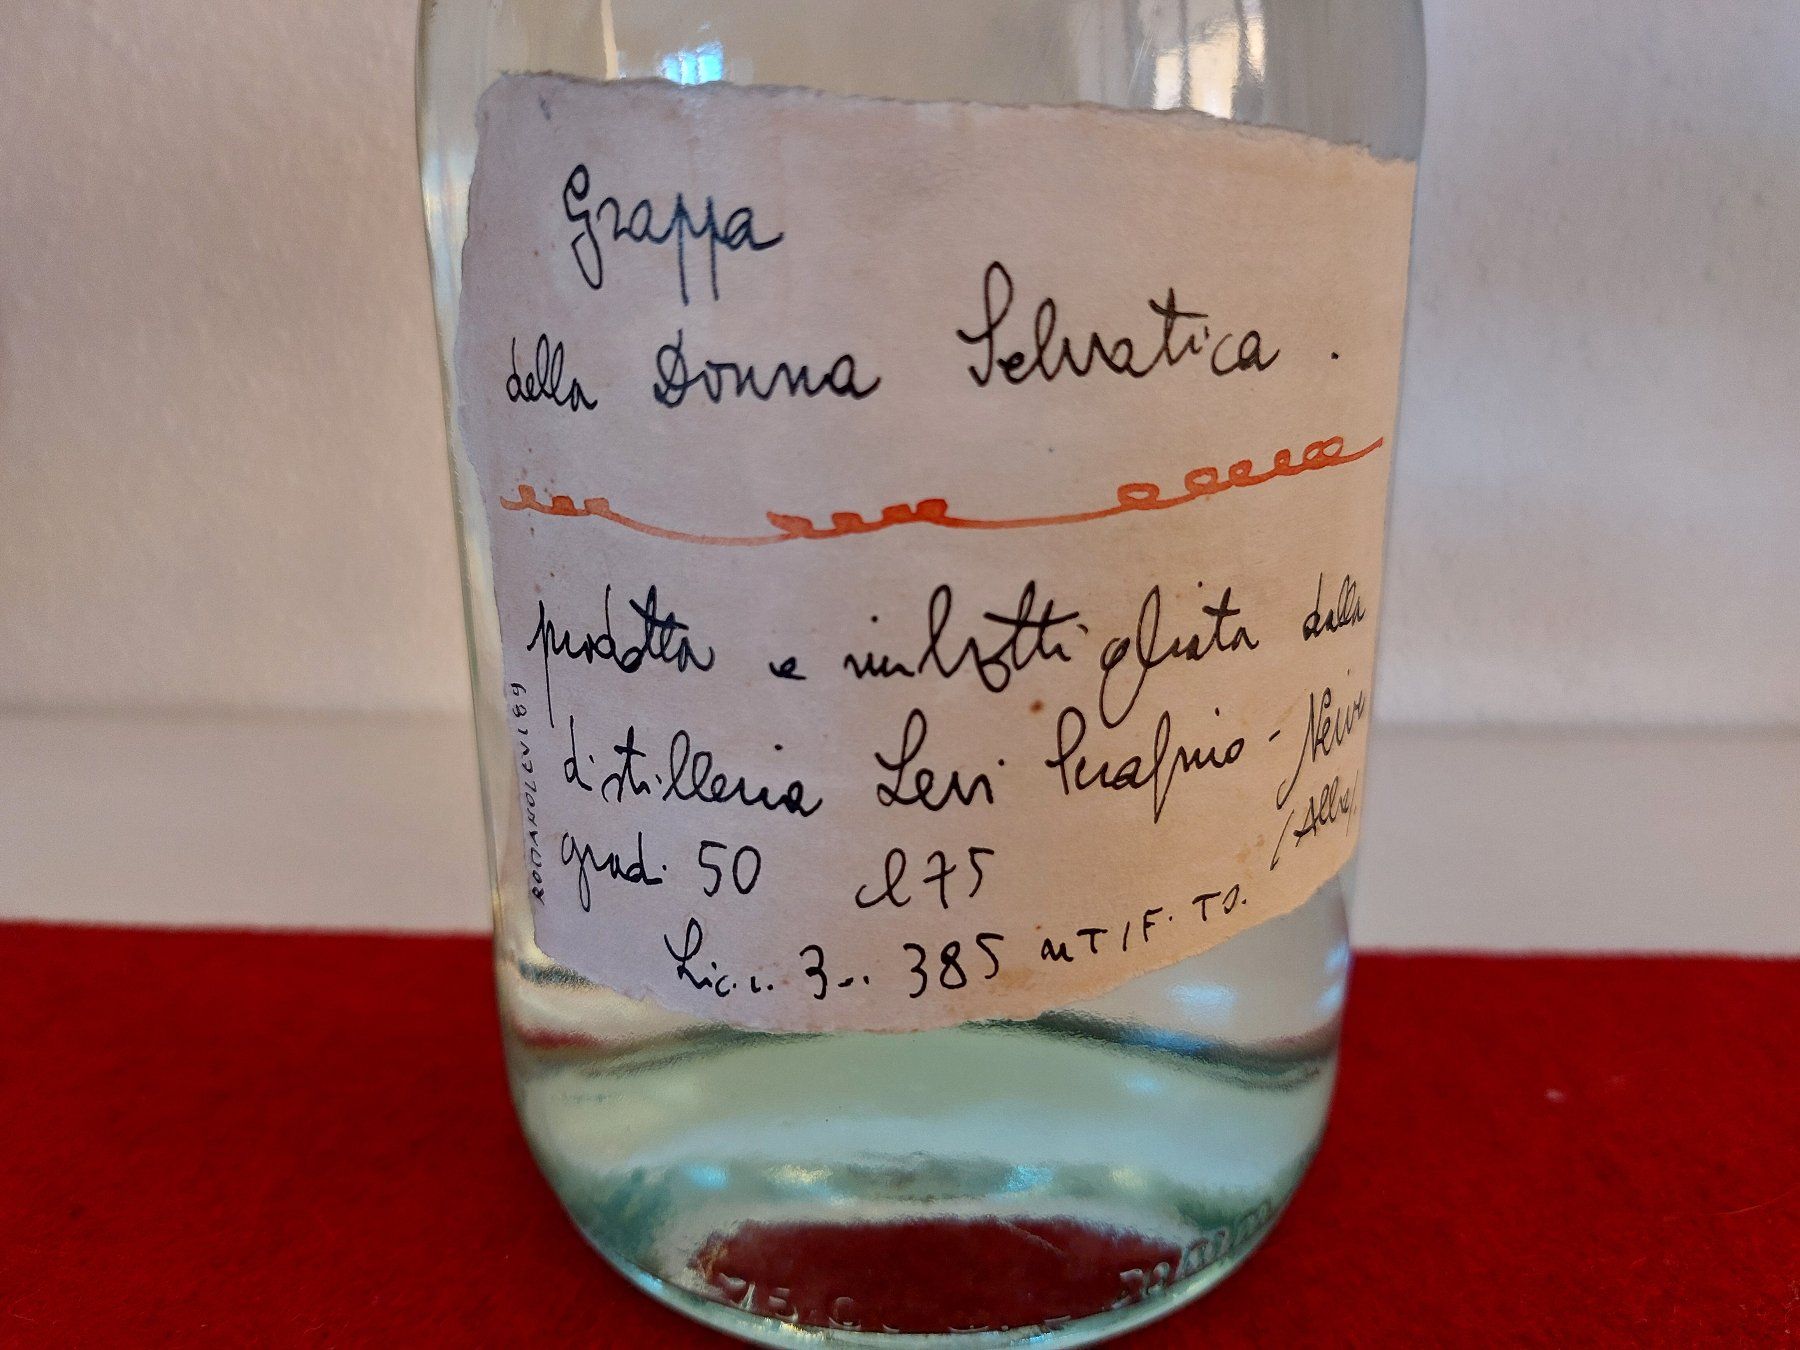 Grappa
della Donna Selvatica .
prodotta e imbottigliata dalla
distilleria Levi Serafino - Neive
(Alba)
gradi 50 cl 75
Lic. 385 UTIF. TO.
ROMANO LEVI 89